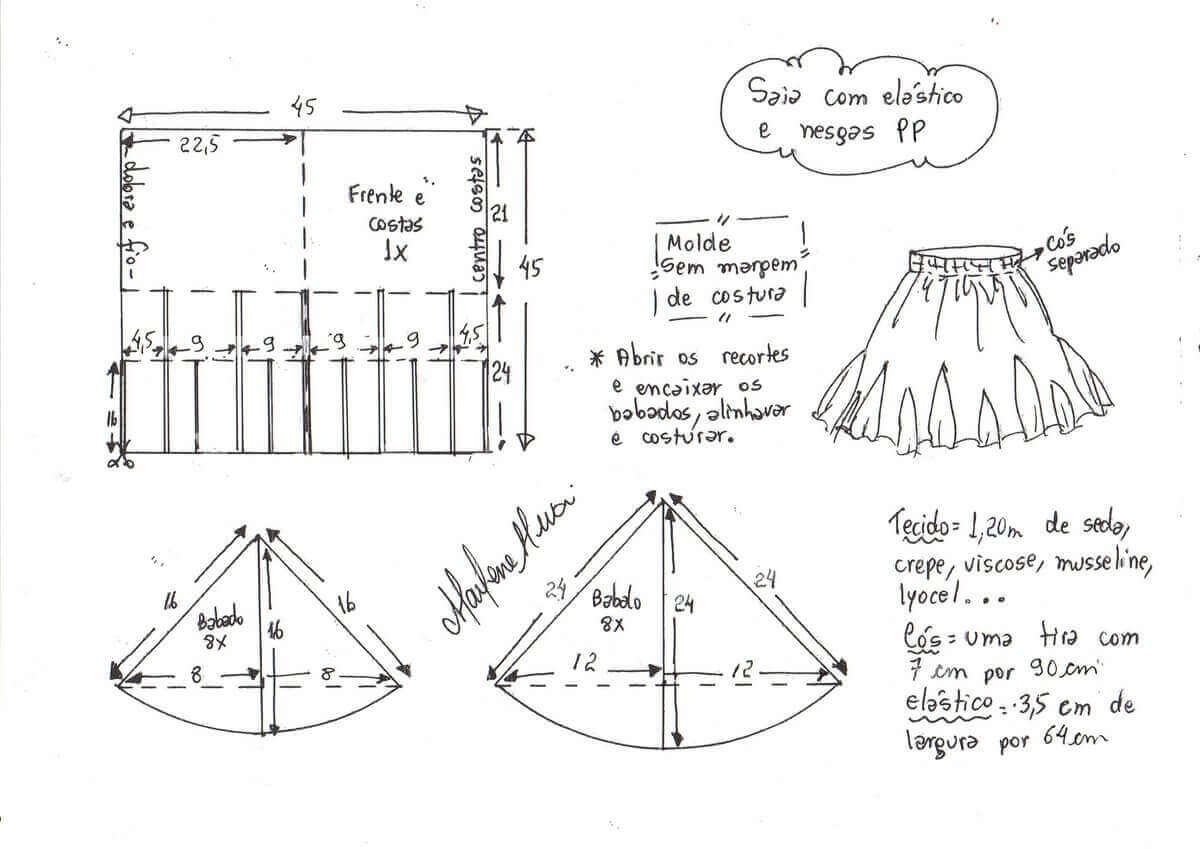 Saia com elástico
e nesgas PP
45
22,5
dobra e fio
Frente e
costas
1x
centro costas
21
45
4,5
9
9
9
9
4,5
24
16
Molde
Sem margem
de costura
* Abrir os recortes
e encaixar os
babados, alinhavar
e costurar.
Cós
separado
16
16
Babado
8x
16
8
8
Marlene Mukai
24
24
Babado
8x
24
12
12
Tecido = 1,20m de seda,
crepe, viscose, musseline,
lyocel...
Cós = uma tira com
7 cm por 90cm
elástico = 3,5 cm de
largura por 64cm